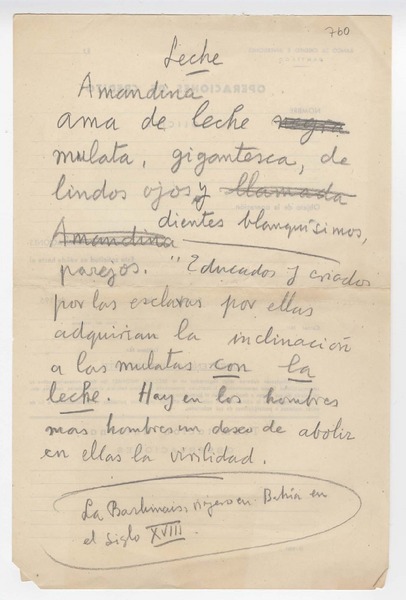 760
Leche
Amandina
ama de leche negra
mulata, gigantesca, de
lindos ojos y llamada
Amandina dientes blanquísimos,
parejos. "Educados y criados
por las esclavas por ellas
adquirian la inclinación
a las mulatas con la
leche. Hay en los hombres
mas hombres un deseo de abolir
en ellas la virilidad.
La Barbinais, viajero en Bahía en
el siglo XVIII.